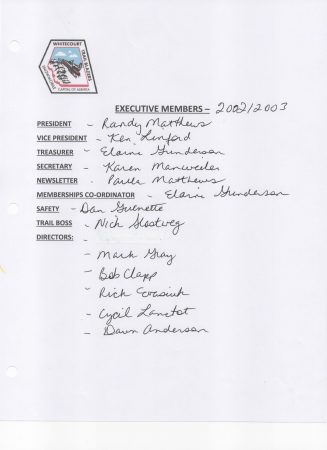 WHITECOURT
TRAIL BLAZERS
SNOWMOBILE
CAPITAL OF ALBERTA
EXECUTIVE MEMBERS – 2002/2003
PRESIDENT - Randy Matthews
VICE PRESIDENT - Ken Linford
TREASURER - Elaine Gunderson
SECRETARY - Karen Manweiler
NEWSLETTER - Paula Matthews
MEMBERSHIPS CO-ORDINATOR - Elaine Gunderson
SAFETY - Dan Guenette
TRAIL BOSS - Nick Slootweg
DIRECTORS: -
- Mark Gray
- Bob Clapp
- Rick Evasiuk
- Cycil Lanctot
- Dawn Anderson